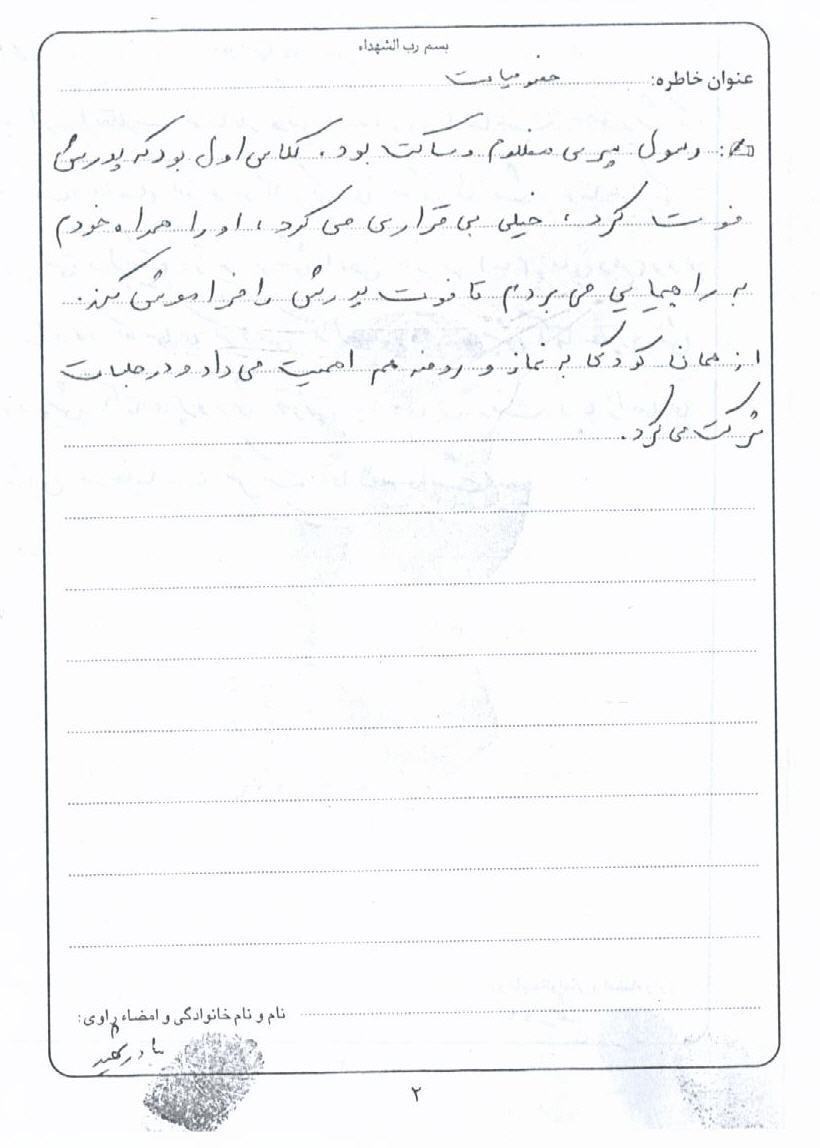 بسم رب الشهداء
عنوان خاطره: خصوصیات
رسول پسری مظلوم و ساکت بود، کلاس اول بود که پدرش
فوت کرد، خیلی بی قراری می کرد، او را همراه خودم
به راهپیمایی می بردم تا فوت پدرش را فراموش کند.
از همان کودکی به نماز و روضه هم اهمیت می داد و در جلسات
شرکت می کرد.
نام و نام خانوادگی و امضاء راوی:
مادر شهید
۲